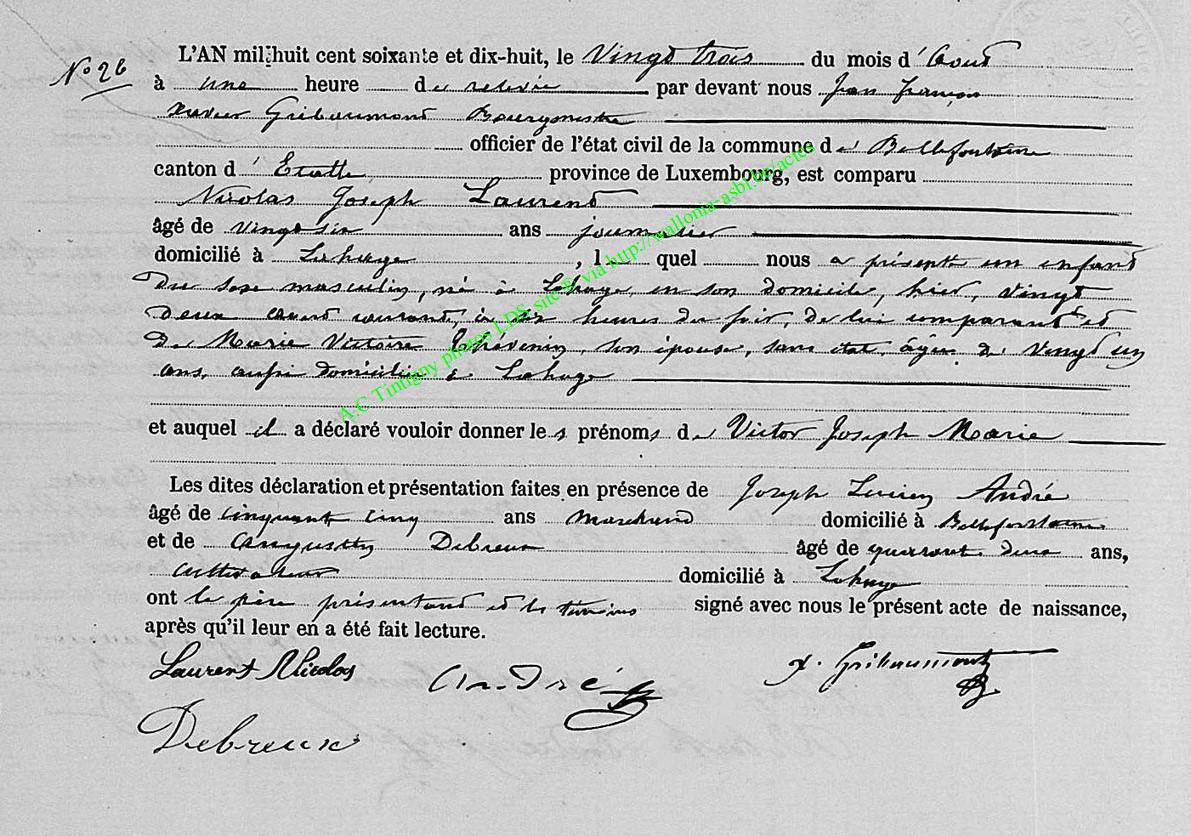 L'AN mil huit cent soixante et dix-huit, le Vingt trois du mois d'Aout
N° 26
à une heure de relevée par devant nous Jean François
Xavier Gribaumont Bourgmestre
officier de l'état civil de la commune de Bellefontaine
canton d'Etalle province de Luxembourg, est comparu
Nicolas Joseph Laurent
âgé de vingt six ans journalier
domicilié à Lahage, lequel nous a présenté un enfant
du sexe masculin, né à Lahage, en son domicile, hier, vingt
deux aout courant, à heures du soir, de lui comparant et
de Marie Victoire Thévenin, son épouse, sans état, âgée de vingt un
ans, aussi domiciliée à Lahage
et auquel il a déclaré vouloir donner les prénoms de Victor Joseph Marie
Les dites déclaration et présentation faites en présence de Joseph Lucien André
âgé de cinquante cinq ans marchand domicilié à Bellefontaine
et de Augustin Debreux âgé de quarante deux ans,
cultivateur domicilié à Lahage
ont le père présentant et les témoins signé avec nous le présent acte de naissance,
après qu'il leur en a été fait lecture.
Laurent Nicolas André x. Gribaumont
Debreux
A.C Tintigny photos LDS site © via http://wallonia-asbl.be/actes